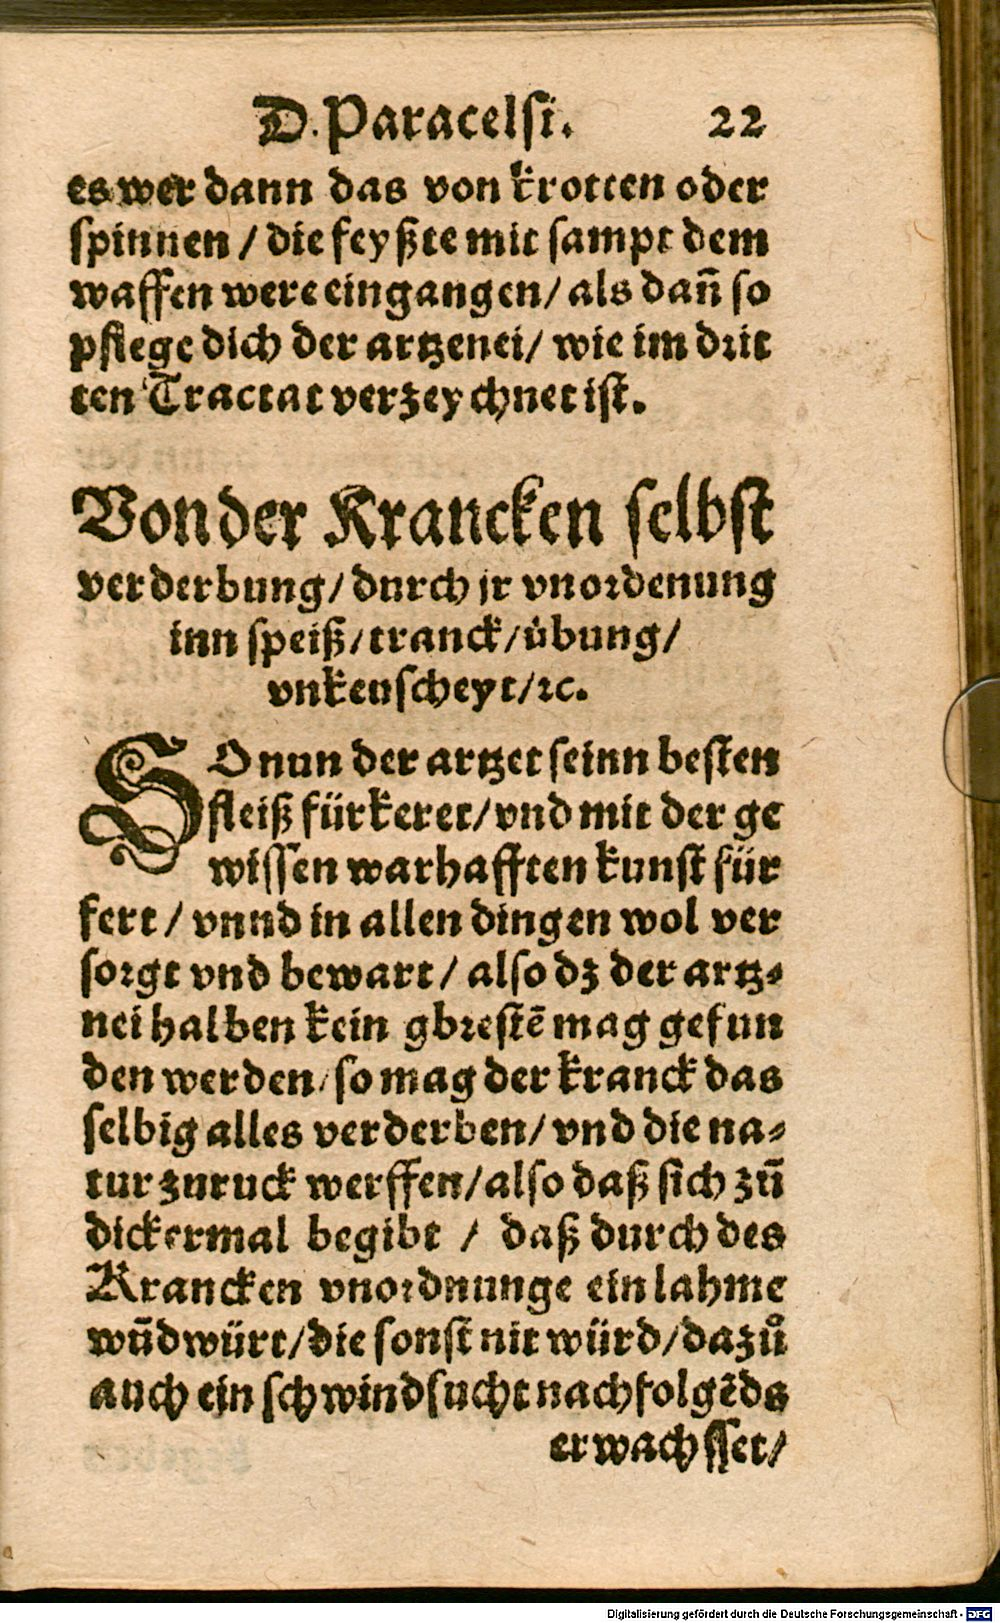 D. Paracelsi. 22
es wer dann das von krotten oder
spinnen / die feyßte mit sampt dem
waffen were eingangen / als dañ so
pflege dich der artzenei / wie im drit
ten Tractat verzeychnet ist.
Von der Krancken selbst
verderbung / durch jr vnordenung
inn speiß / tranck / übung /
vnkeuscheyt / ꝛc.
SO nun der artzet seinn besten
fleiß fürkeret / vnd mit der ge
wissen warhafften kunst für
fert / vnnd in allen dingen wol ver
sorgt vnd bewart / also dz der artz⸗
nei halben kein gbrestẽ mag gefun
den werden / so mag der kranck das
selbig alles verderben / vnd die na⸗
tur zuruck werffen / also daß sich zũ
dickermal begibt / daß durch des
Krancken vnordnunge ein lahme
wũd würt / die sonst nit würd / dazů
auch ein schwindsucht nachfolgẽds
erwachsset /
Digitalisierung gefördert durch die Deutsche Forschungsgemeinschaft - DFG